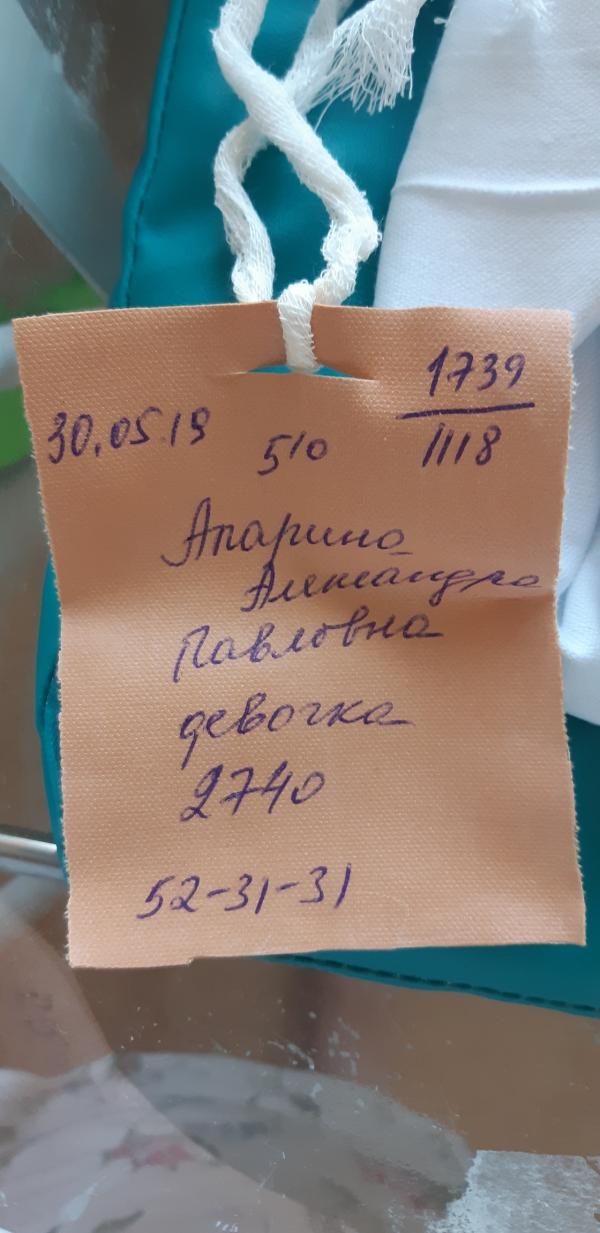 1739
30.05.19 5/0 1118
Апарина
Александра
Павловна
девочка
2740
52-31-31